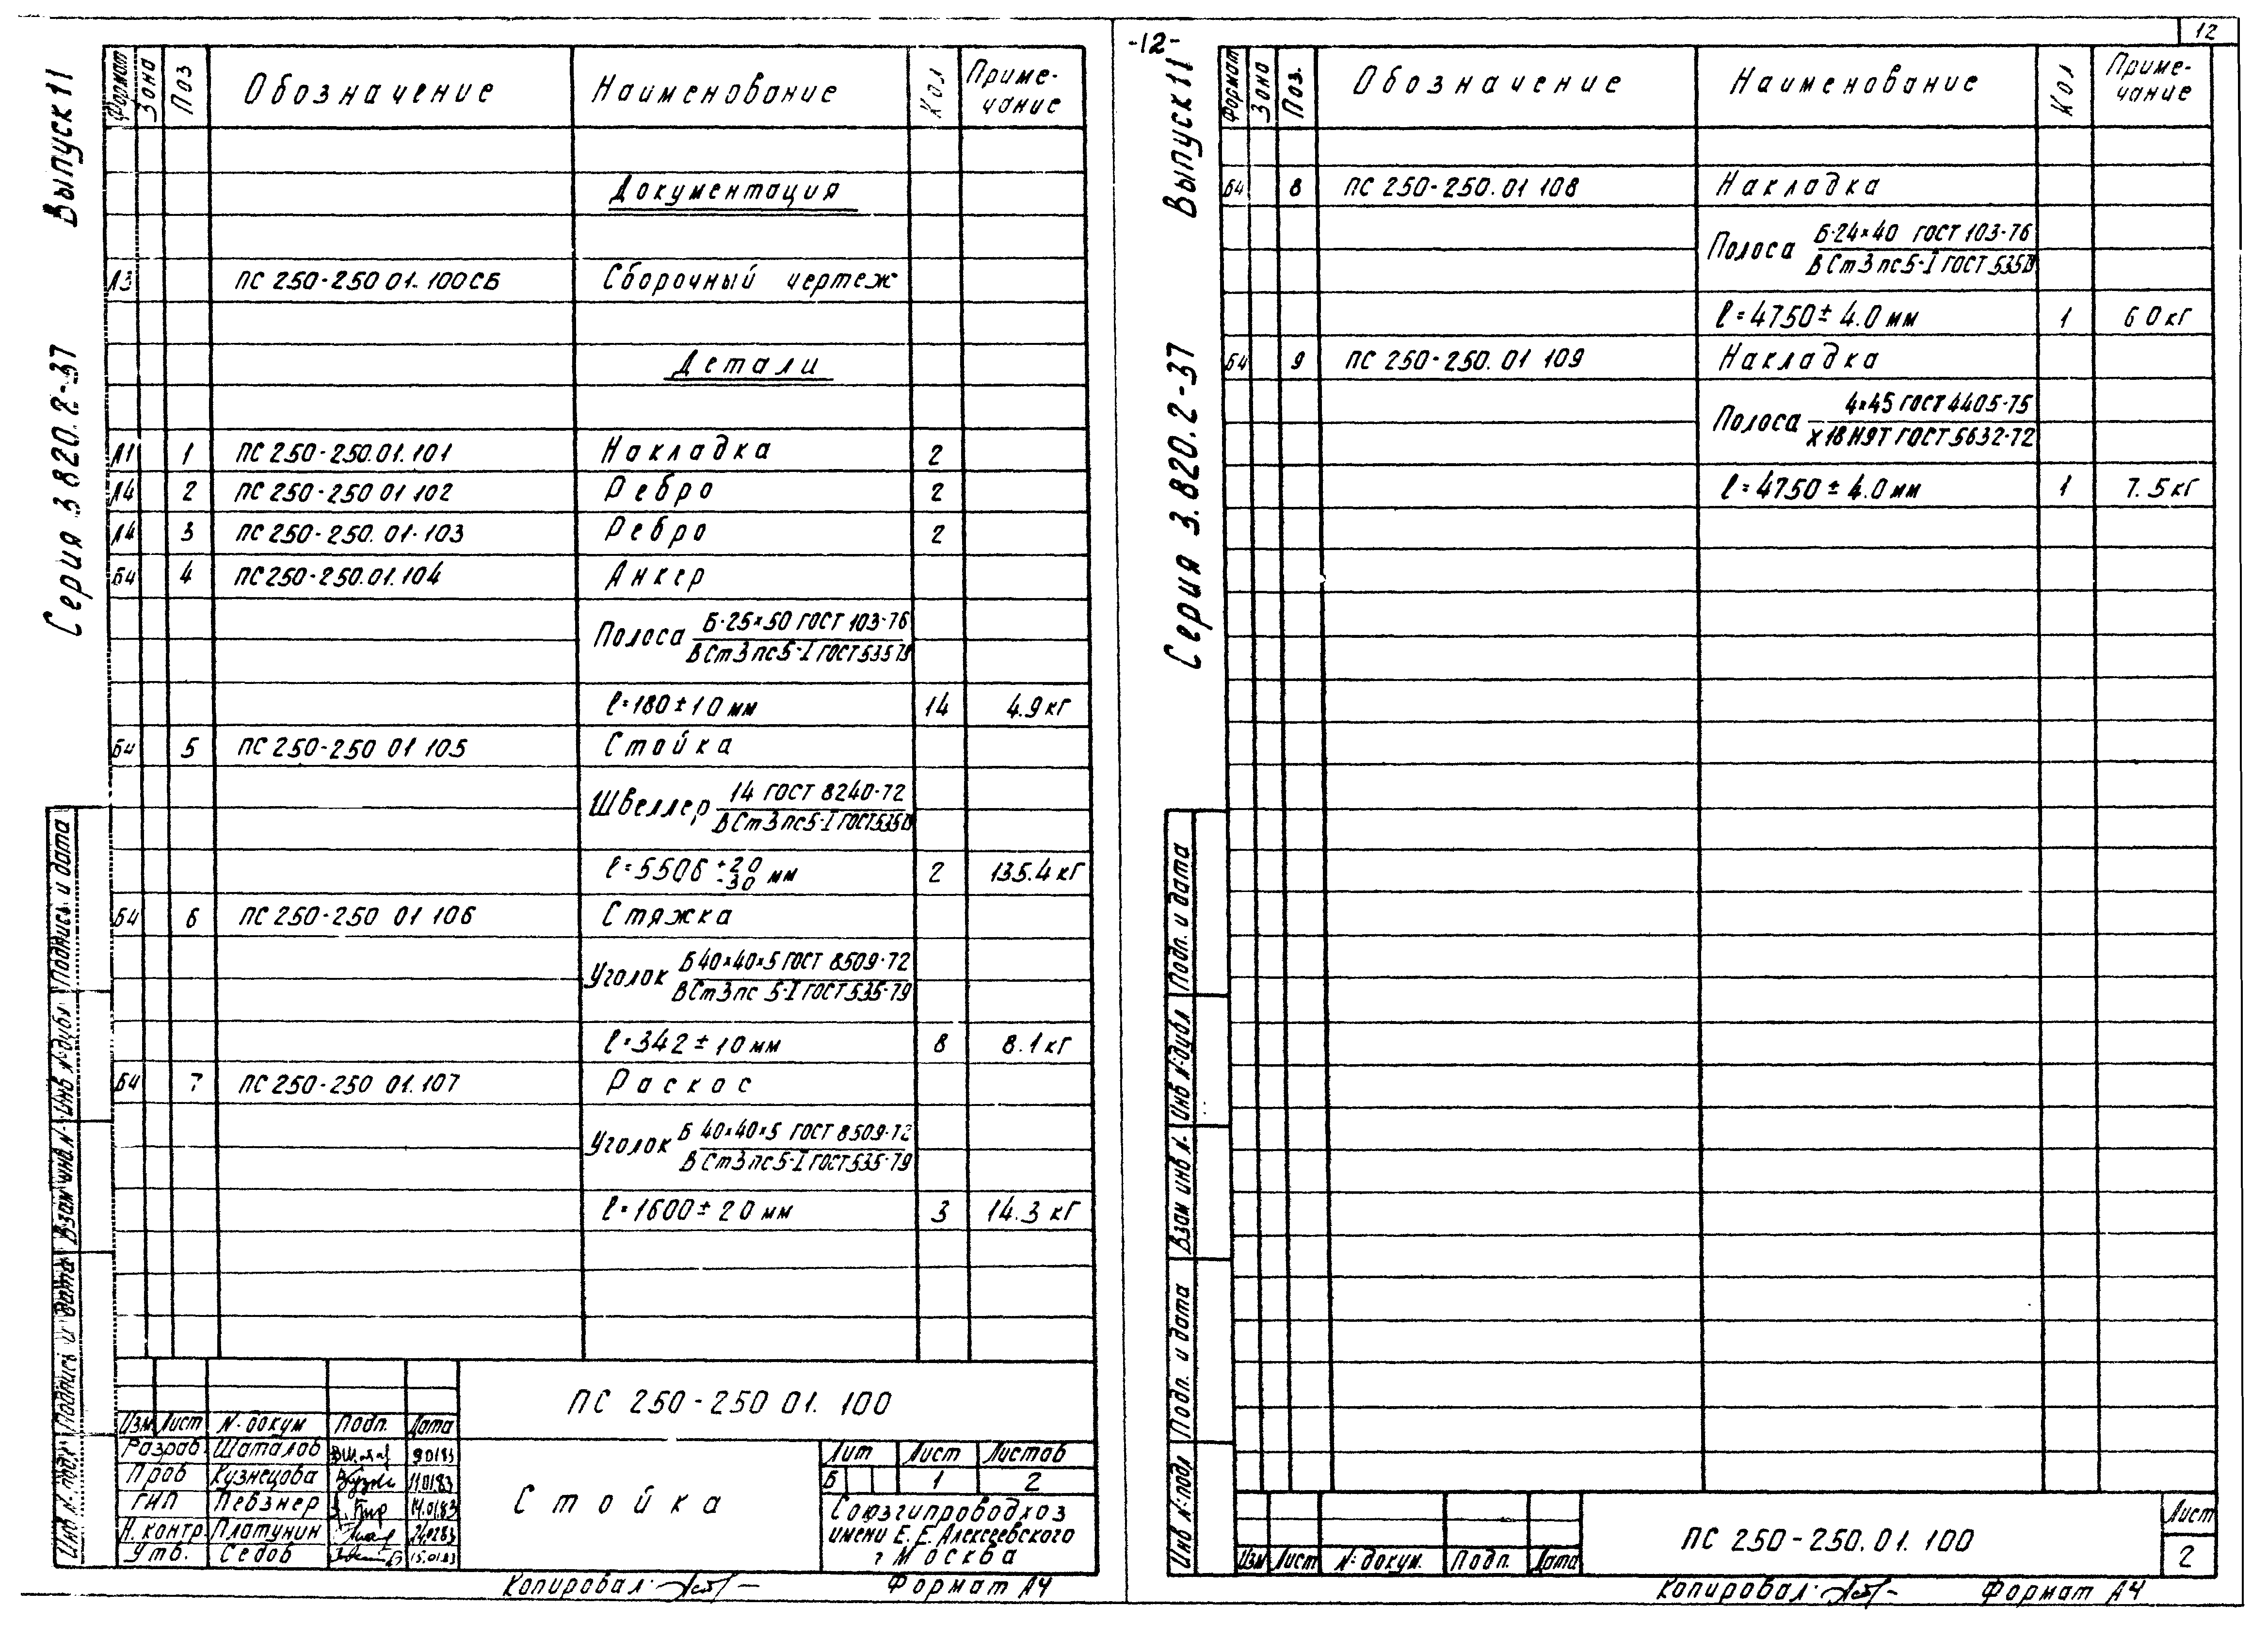 12
-12-
Серия 3 820.2-37 Выпуск 11
Формат Зона Поз Обозначение Наименование Кол Приме-чание
Документация
А3 ПС 250-250 01.100СБ Сборочный чертеж
Детали
А1 1 ПС 250-250.01.101 Накладка 2
А4 2 ПС 250-250 01 102 Ребро 2
А4 3 ПС 250-250.01.103 Ребро 2
Б4 4 ПС 250-250.01.104 Анкер
Полоса Б-25×50 ГОСТ 103-76
ВСт3пс5-I ГОСТ 535 79
ℓ=180±10 мм 14 4.9 кг
Б4 5 ПС 250-250 01 105 Стойка
Швеллер 14 ГОСТ 8240-72
ВСт3пс5-I ГОСТ 535
ℓ=5506 +20 -30 мм 2 135.4 кг
Б4 6 ПС 250-250 01 106 Стяжка
Уголок Б 40×40×5 ГОСТ 8509-72
ВСт3пс 5-I ГОСТ 535-79
ℓ=342±10 мм 8 8.1 кг
Б4 7 ПС 250-250 01.107 Раскос
Уголок Б 40×40×5 ГОСТ 8509-72
ВСт3пс5-I ГОСТ 535-79
ℓ=1600±20 мм 3 14.3 кг
Инв N подл Подпись и дата Взам инв. N Инв N дубл Подпись и дата
ПС 250-250 01.100
Изм Лист N докум Подп. Дата
Разраб Шаталов 9.01.83
Пров Кузнецова 11.01.83
ГИП Певзнер 14.01.83
Н. контр Платунин 24.02.83
Утв. Седов 15.01.83
Стойка
Лит Лист Листов
Б 1 2
Союзгипроводхоз
имени Е. Е. Алексеевского
г Москва
Копировал: Формат А4
Серия 3.820.2-37 Выпуск 11
Формат Зона Поз. Обозначение Наименование Кол Приме-чание
Б4 8 ПС 250-250.01 108 Накладка
Полоса Б-24×40 ГОСТ 103-76
ВСт3пс5-I ГОСТ 535
ℓ=4750±4.0 мм 1 60 кг
Б4 9 ПС 250-250.01 109 Накладка
Полоса 4×45 ГОСТ 4405-75
Х18Н9Т ГОСТ 5632-72
ℓ=4750±4.0 мм 1 7.5 кг
Инв N подл Подп. и дата Взам инв N. Инв N дубл Подп. и дата
Изм Лист N докум. Подп. Дата
ПС 250-250.01.100
Лист
2
Копировал: Формат А4